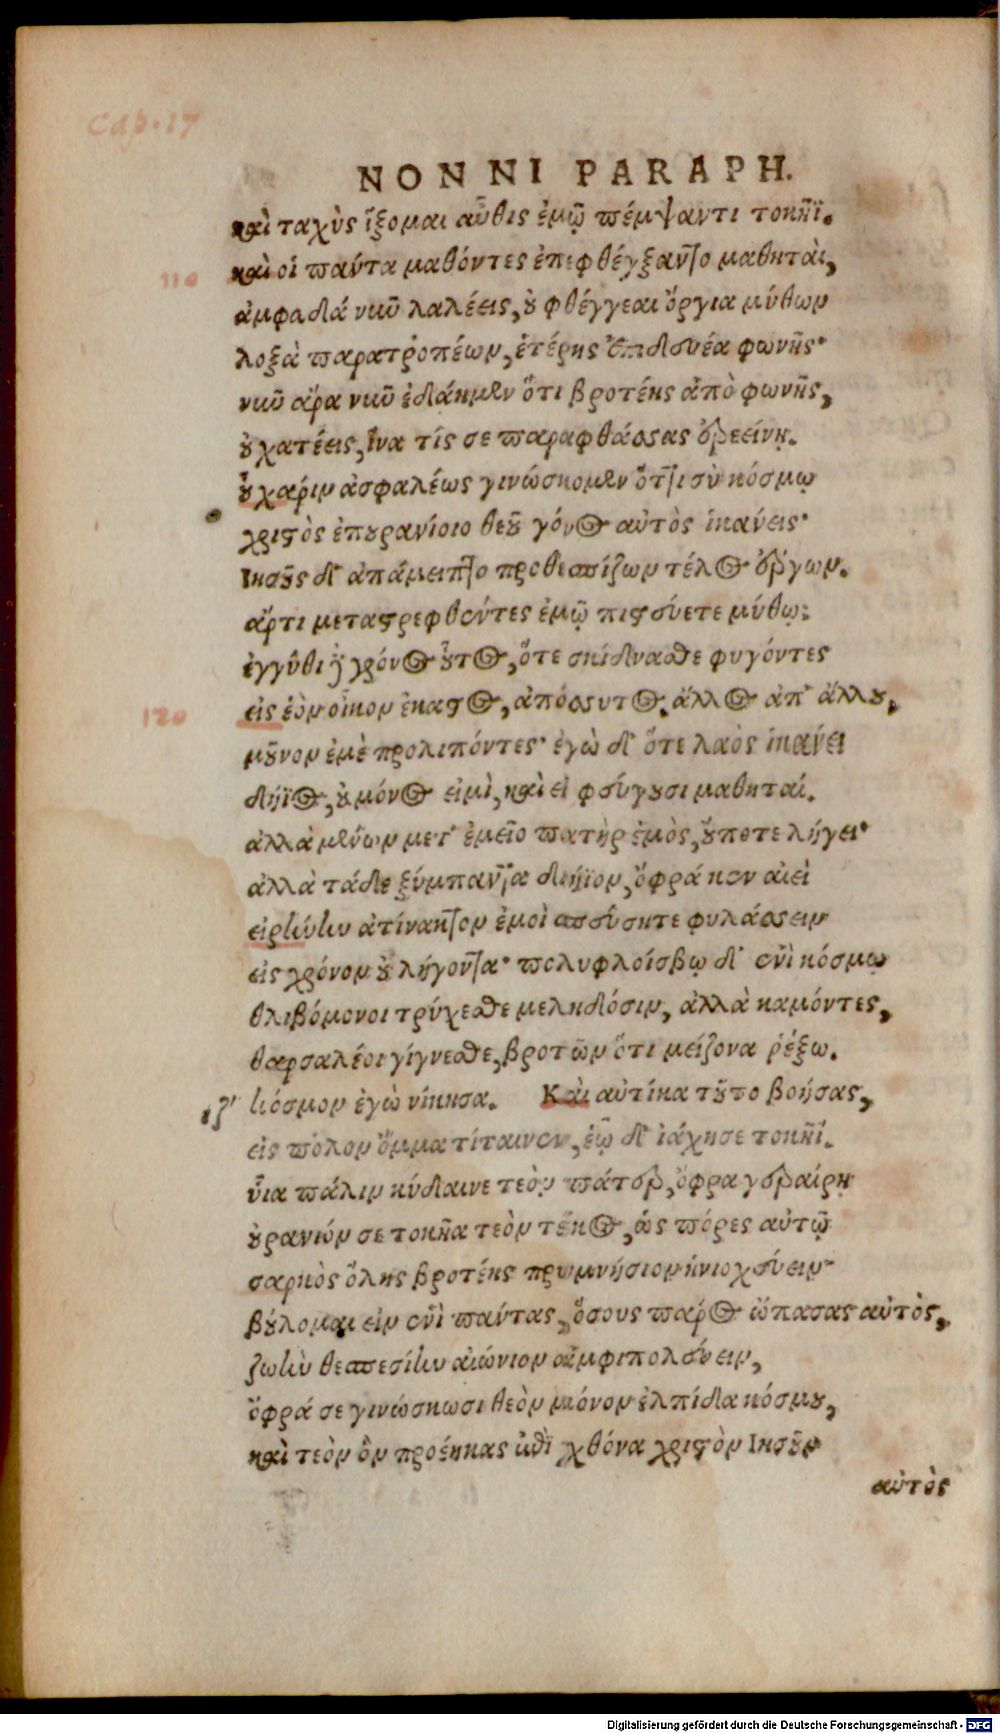 Cap. 17
NONNI PARAPH.
καὶ ταχὺς ἵξομαι αὖθις ἐμῷ πέμψαντι τοκῆϊ.
110
καὶ οἱ πάντα μαθόντες ἐπεφθέγξαντο μαθηταὶ,
ἀμφαδιά νιῦ λαλέεις, οὐ φθέγγεαι ὄργια μύθων
λοξὰ παρατροπέων, ἑτέρης ἐπιδευέα φωνῆς·
νῦν ἄρα νῦν ἐδάημεν ὅτι βροτέης ἀπὸ φωνῆς,
οὐ χατέεις, ἵνα τίς σε παραφθάσσας ἐρεείνῃ.
οὗ χάριν ἀσφαλέως γινώσκομεν ὅττι σὺ κόσμῳ
χριστὸς ἐπουρανίοιο θεοῦ γόνος αὐτὸς ἱκάνεις·
Ιησοῦς δ' ἀπάμειπτο προθεσπίζων τέλος ἔργων.
ἄρτι μεταστρεφθέντες ἐμῷ πιστεύετε μύθῳ;
ἐγγύθι γὰρ χρόνος οὗτος, ὅτε σκίδνασθε φυγόντες
120
εἰς ἑὸν οἶκον ἕκαστος, ἀπόσσυτος, ἄλλος ἀπ' ἄλλου,
μοῦνον ἐμὲ προλιπόντες· ἐγὼ δ' ὅτε λαὸς ἱκάνει
δήϊος, οὐ μόνος εἰμὶ, καὶ εἰ φεύγουσι μαθηταί.
ἀλλὰ μένων μετ' ἐμεῖο πατὴρ ἐμὸς, οὔποτε λήγει·
ἀλλὰ τάδε ξύμπαντα διήϊον, ὄφρά κεν αἰεὶ
εἰρήνην ἀτίνακτον ἐμοὶ σπεύσητε φυλάσσειν
εἰς χρόνον οὐ λήγοντα· πολυφλοίσβῳ δ' ἐνὶ κόσμῳ
θλιβόμενοι τρύχεσθε μεληδόσιν, ἀλλὰ καμόντες,
θαρσαλέοι γίγνεσθε, βροτῶν ὅτι μείζονα ῥέξω.
ιζ' κόσμον ἐγὼ νίκησα. Καὶ αὐτίκα τοῦτο βοήσας,
εἰς πόλον ὄμμα τίταινεν, ἑῷ δ' ἰάχησε τοκῆϊ.
υἷα πάλιν κύδαινε τεὸν πάτερ, ὄφρα γεραίρῃ
οὐρανιόν σε τοκῆα τεὸν τέκος, ὡς πόρες αὐτῷ
σαρκὸς ὅλης βροτέης πρυμνήσιον ἡνιοχεύειν·
βούλομαι εἰν ἐνὶ πάντας, ὅσους πάρος ὤπασας αὐτὸς,
ζωὴν θεσπεσίην αἰώνιον ἀμφιπολεύειν,
ὄφρά σε γινώσκωσι θεὸν μόνον ἐλπίδα κόσμου,
καὶ τεὸν ὃν προέηκας ἐπὶ χθόνα χριστὸν Ιησοῦν
αὐτὸς
Digitalisierung gefördert durch die Deutsche Forschungsgemeinschaft - DFG